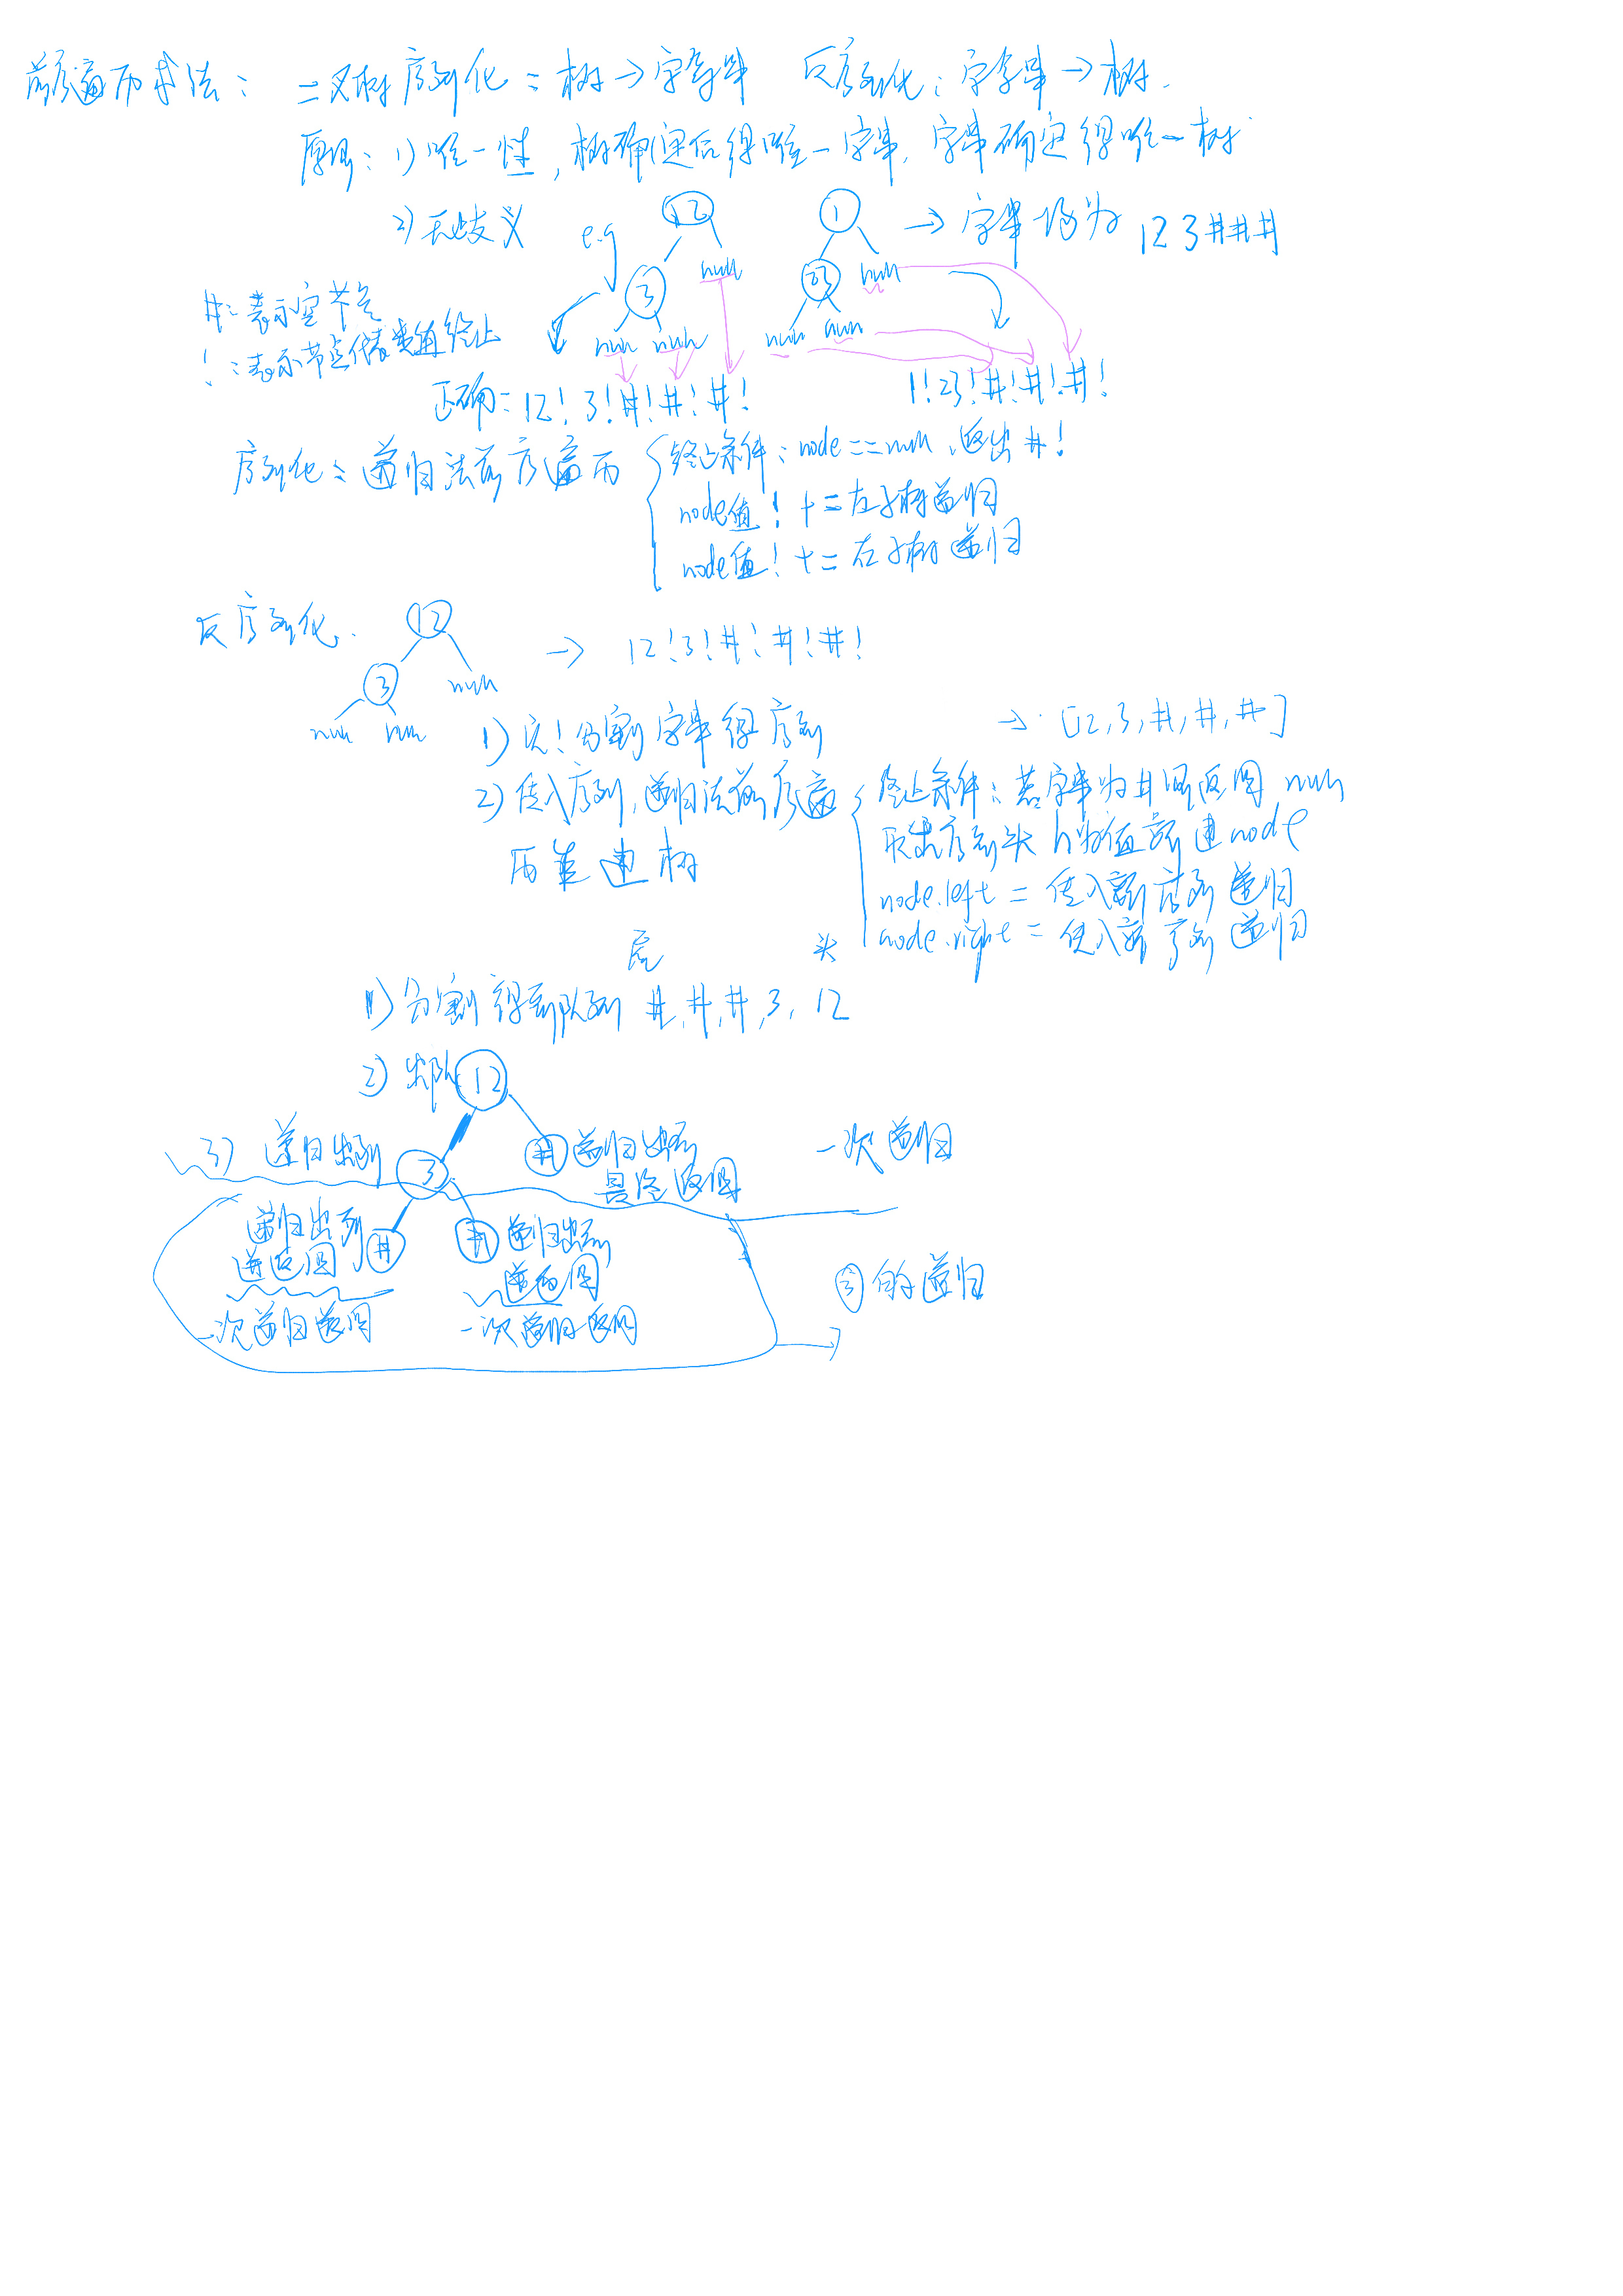 前序遍历求法： 二叉树序列化：树→字符串 反序列化：字符串→树.
原则：1) 唯一性，树确定后得唯一字串，字串确定得唯一树
2) 无歧义 e.g 12 1 → 字串均为 123###
3 null 23 null
#：表示空节点
null null null null
！：表示节点储存类值终止
正确：12!3!#!#!#! 1!23!#!#!#!
序列化：递归法前序遍历 终止条件：node==null，返出#!
node值! += 左子树递归
node值! += 右子树递归
反序列化. 12 → 12!3!#!#!#!
3 null
null null
1) 以!分割字串得序列 → [12,3,#,#,#]
2) 传入序列，递归法前序遍历重建树
终止条件：若字串为#则返回 null
取出序列头 为值新建node
node.left = 传入新序列递归
node.right = 传入新序列递归
尾 头
1) 分割得到队列 #,#,#,3,12
2) 出队 12
3) 递归出列 3 # 递归出列 最终返回 一次递归
递归出列 # # 递归出列
并返回 并返回
③的递归
一次递归返回 一次递归返回